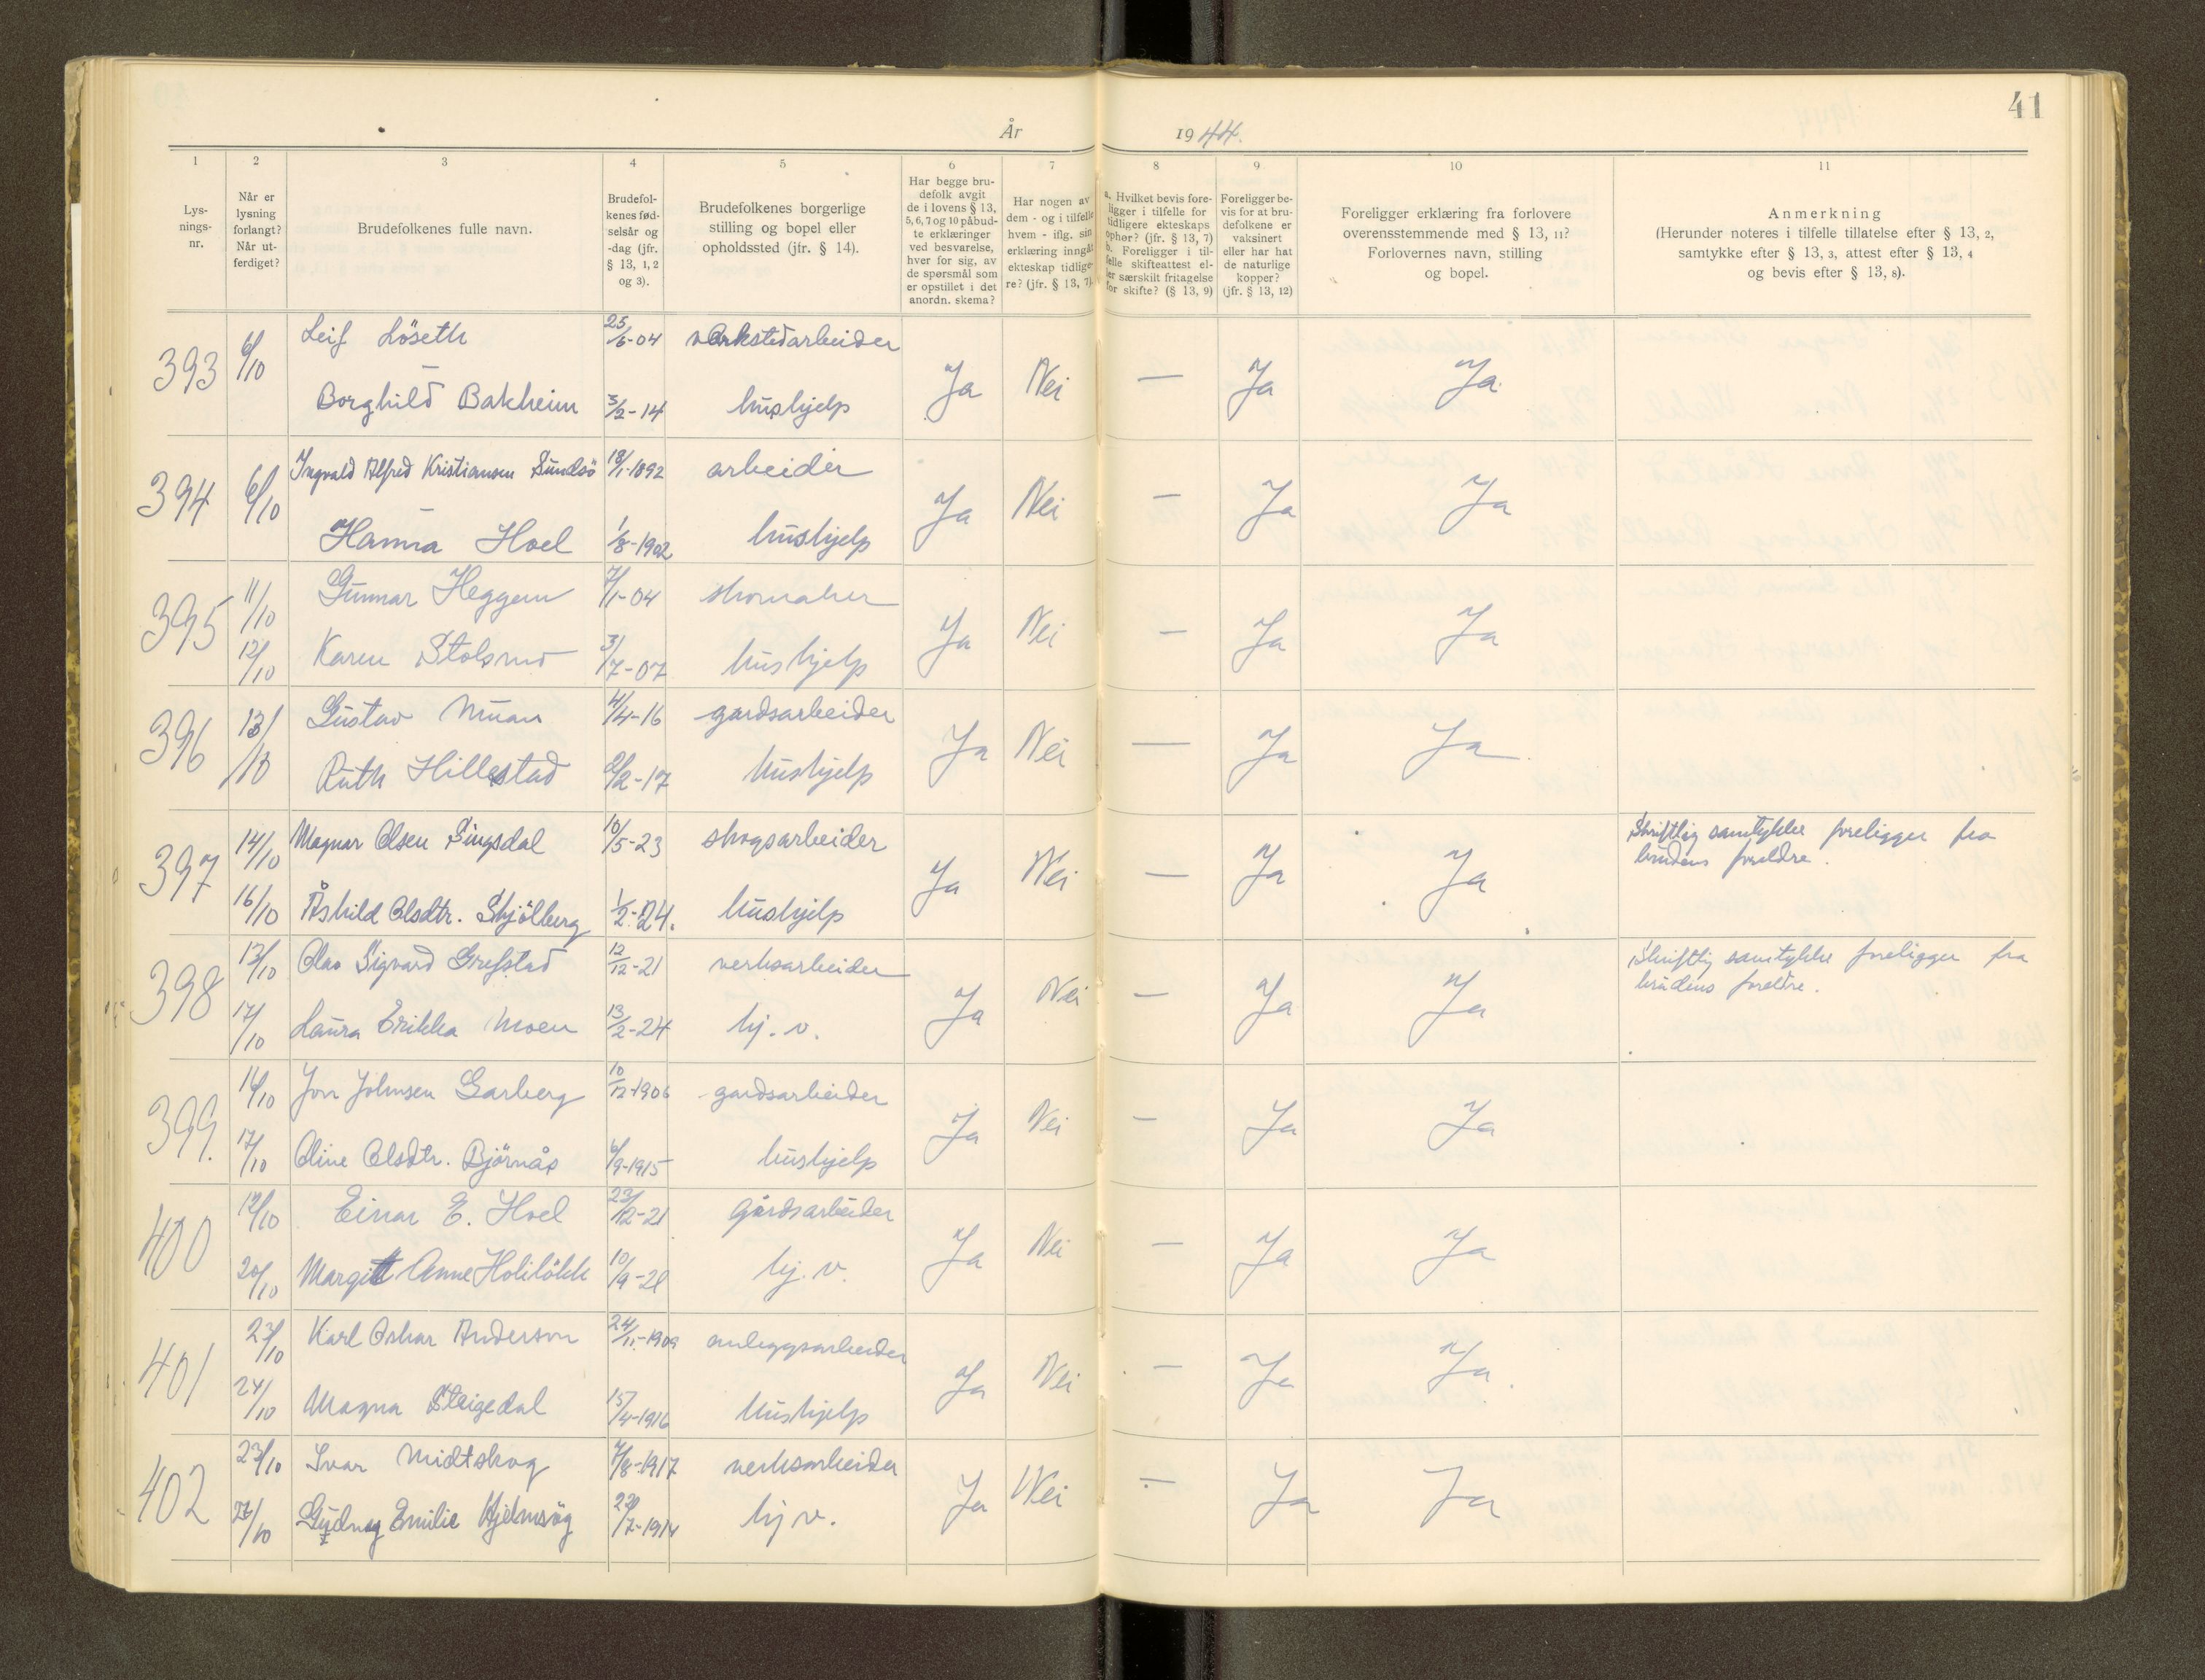 41
År 1944.
1 2 3 4 5 6 7 8 9 10 11
Lysnings-nr.
Når er lysning forlangt? Når utferdiget?
Brudefolkenes fulle navn.
Brudefolkenes fødselsår og -dag (jfr. § 13, 1, 2 og 3).
Brudefolkenes borgerlige stilling og bopel eller opholdssted (jfr. § 14).
Har begge brudefolk avgit de i lovens § 13, 5, 6, 7 og 10 påbudte erklæringer ved besvarelse, hver for sig, av de spørsmål som er opstillet i det anordn. skema?
Har nogen av dem - og i tilfelle hvem - iflg. sin erklæring inngått ekteskap tidligere? (jfr. § 13, 7).
a. Hvilket bevis foreligger i tilfelle for tidligere ekteskaps ophør? (jfr. § 13, 7) b. Foreligger i tilfelle skifteattest eller særskilt fritagelse for skifte? (§ 13, 9)
Foreligger bevis for at brudefolkene er vaksinert eller har hat de naturlige kopper? (jfr. § 13, 12)
Foreligger erklæring fra forlovere overensstemmende med § 13, 11? Forlovernes navn, stilling og bopel.
Anmerkning (Herunder noteres i tilfelle tillatelse efter § 13, 2, samtykke efter § 13, 3, attest efter § 13, 4 og bevis efter § 13, 8).
393 6/10 Leif Löseth 25/6-04 verkstedarbeider Ja Nei — Ja Ja
Borghild Bakheim 3/2-14 hushjelp
394 6/10 Ingvald Alfred Kristiansen Sundsö 18/1-1892 arbeider Ja Nei — Ja Ja
Hanna Hoel 1/8-1902 hushjelp
395 11/10 Gunnar Heggem 7/1-04 skomaker Ja Nei — Ja Ja
12/10 Karen Stolsmo 3/7-07 hushjelp
396 13/10 Gustav Muan 4/4-16 gardsarbeider Ja Nei — Ja Ja
Ruth Hillestad 2/2-17 hushjelp
397 14/10 Magnar Olsen Singsdal 10/5-23 skogsarbeider Ja Nei — Ja Ja Skriftlig samtykke foreligger fra
brudens foreldre.
16/10 Åshild Olsdtr. Skjölberg 1/2-24. hushjelp
398 13/10 Olav Sigvard Grefstad 12/12-21 verksarbeider Ja Nei — Ja Ja Skriftlig samtykke foreligger fra
brudens foreldre.
17/10 Laura Erikka Moen 13/2-24 hj. v.
399. 16/10 Jon Johnsen Garberg 10/12-1906 gardsarbeider Ja Nei — Ja Ja
17/10 Oline Olsdtr. Björnås 6/9-1915 hushjelp
400 12/10 Einar E. Hoel 23/12-21 gårdsarbeider Ja Nei — Ja Ja
20/10 Margitt Anne Holilökk 10/9-21 hj. v.
401 23/10 Karl Oskar Anderson 24/11-1909 anleggsarbeider Ja Nei — Ja Ja.
24/10 Magna Steigedal 15/4-1916 hushjelp
402 23/10 Ivar Midtskog 4/8-1917 verksarbeider Ja Nei — Ja Ja
27/10 Gudnag Emilie Hjelmsög 22/7-1914 hj v.